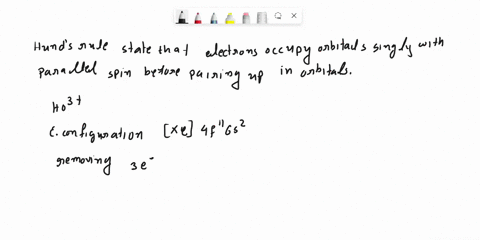 Hund's rule state that electrons occupy orbitals singly with
parallel spin before pairing up in orbitals.
Ho³⁺
E. configuration [Xe] 4f¹¹ 6s²
removing 3e⁻